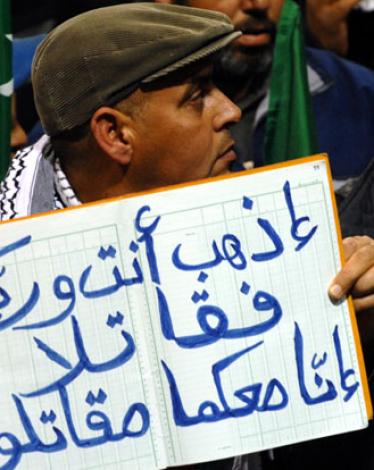 إذهب أنت وربك
فقاتلا
إنّا معكما مقاتلو